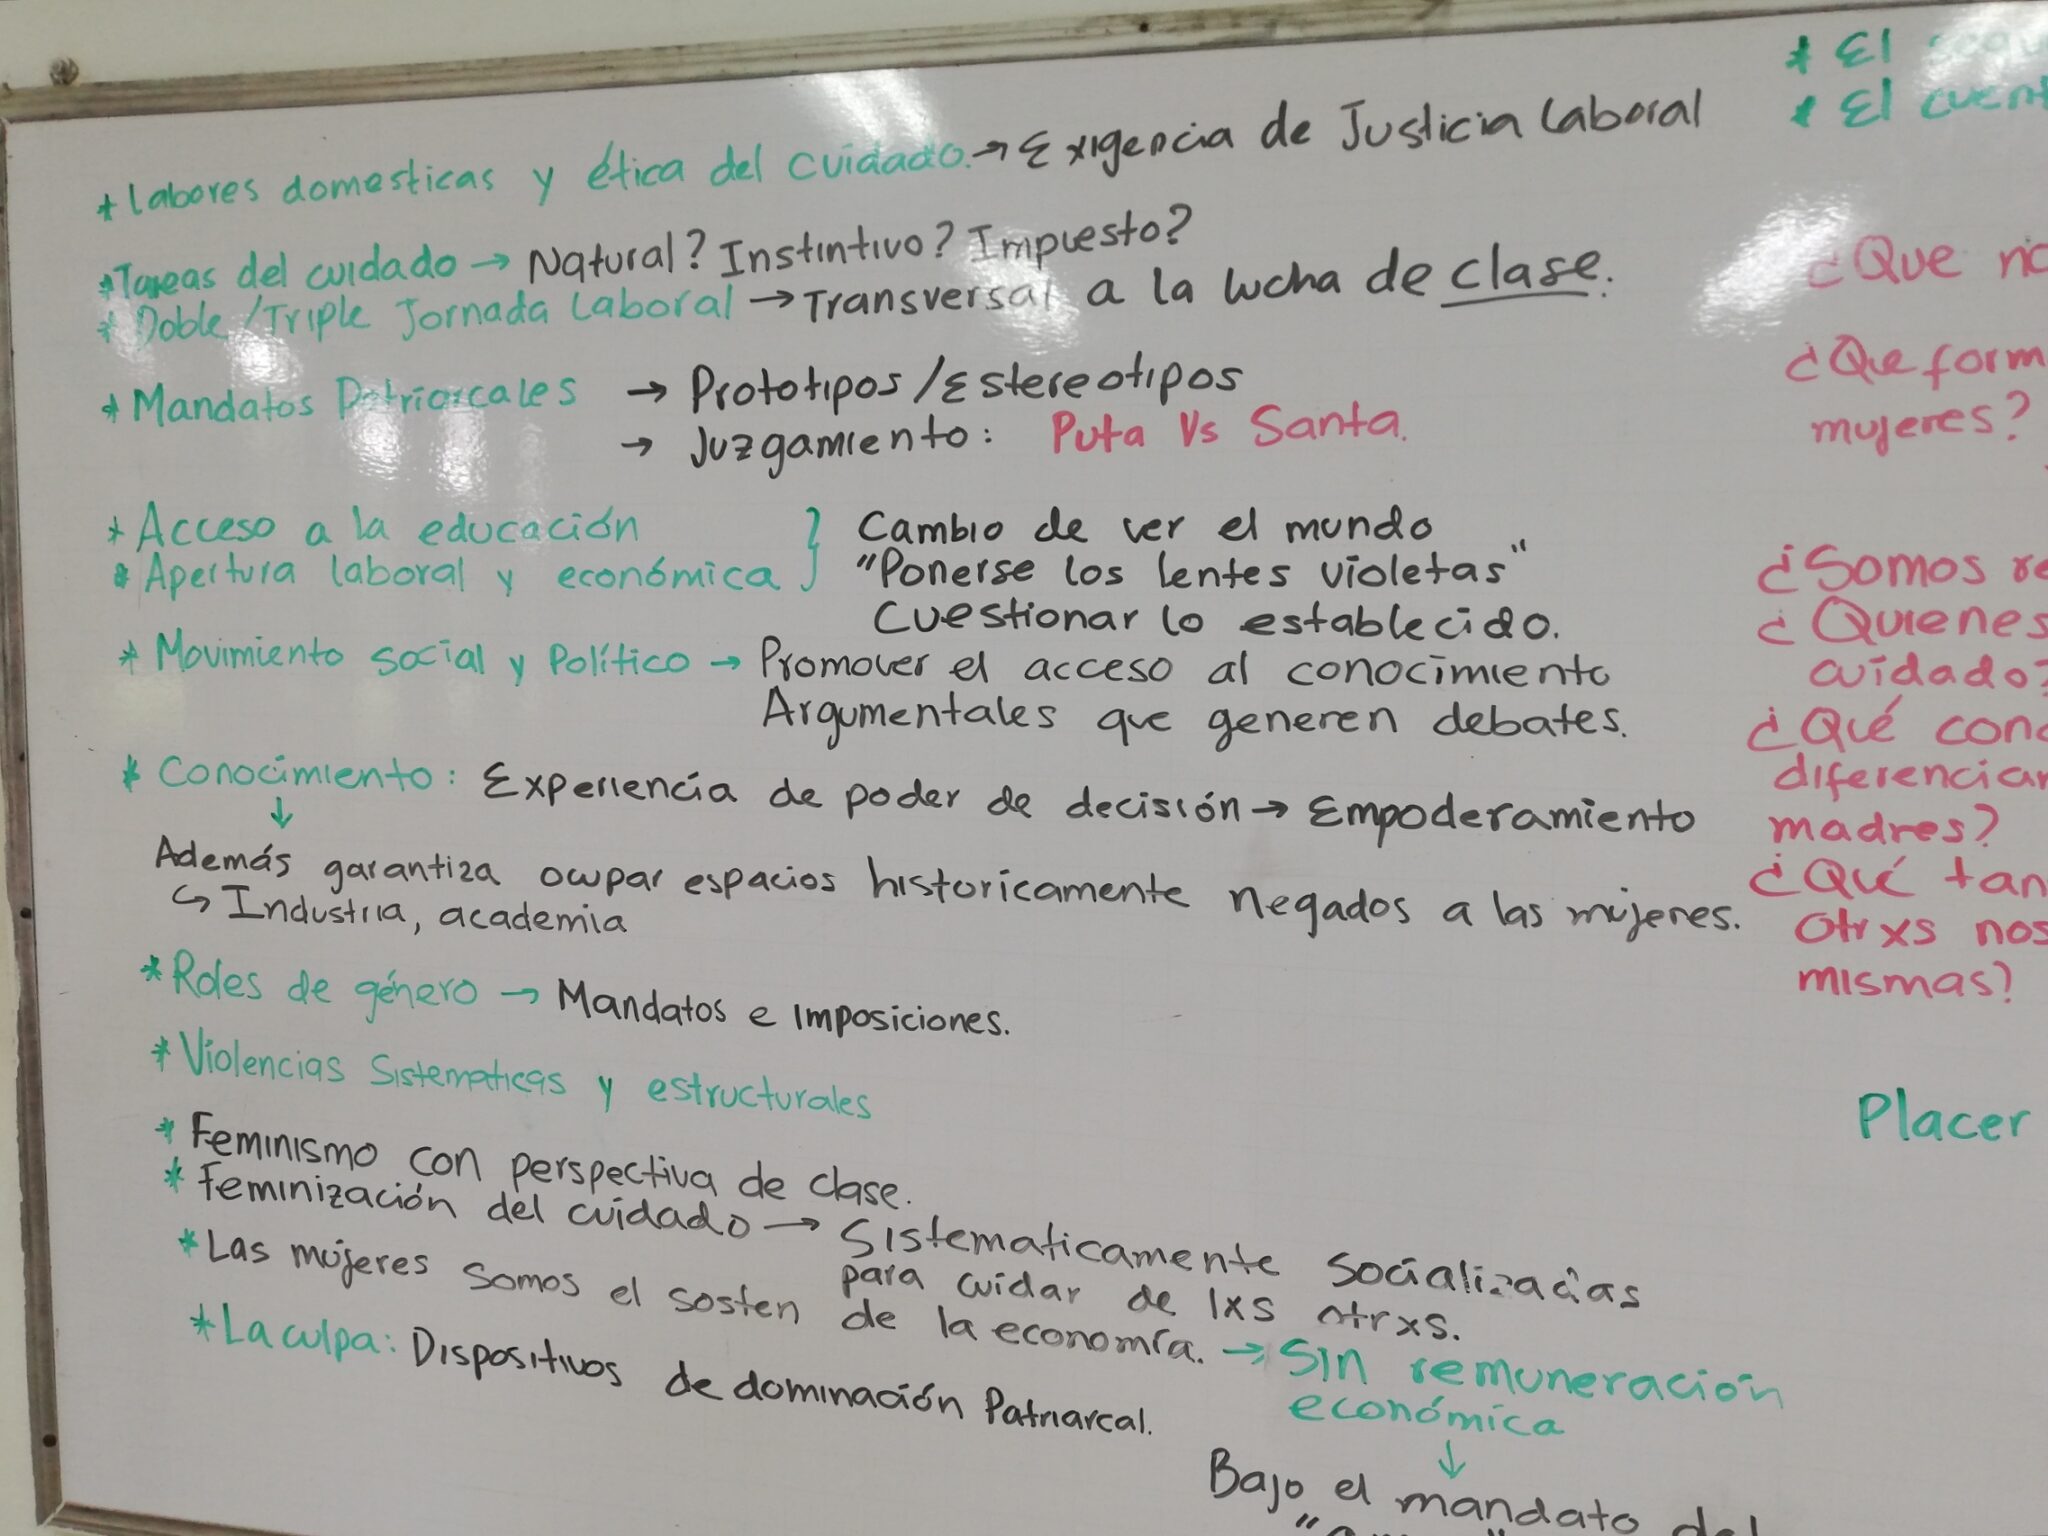 * Labores domesticas y ética del cuidado. → Exigencia de Justicia Laboral
* Tareas del cuidado → Natural? Instintivo? Impuesto?
* Doble/Triple Jornada Laboral → Transversal a la lucha de clase.
* Mandatos Patriarcales → Prototipos/Estereotipos
→ Juzgamiento: Puta Vs Santa.
* Acceso a la educación } Cambio de ver el mundo
* Apertura laboral y económica "Ponerse los lentes violetas"
Cuestionar lo establecido.
* Movimiento social y Político → Promover el acceso al conocimiento
Argumentales que generen debates.
* Conocimiento: Experiencia de poder de decisión → Empoderamiento
↓
Además garantiza ocupar espacios históricamente negados a las mujeres.
↪ Industria, academia
* Roles de género → Mandatos e imposiciones.
* Violencias Sistematicas y estructurales
* Feminismo con perspectiva de clase.
* Feminización del cuidado → Sistematicamente socializadas
para cuidar de lxs otrxs.
* Las mujeres somos el sosten de la economía. → Sin remuneración
económica
↓
* La culpa: Dispositivos de dominación Patriarcal.
Bajo el mandato del
* El
* El
¿Que
¿Que
mujeres?
¿Somos
¿Quienes
cuidado?
¿Qué
madres?
¿Qué
otrxs
mismas?
Placer